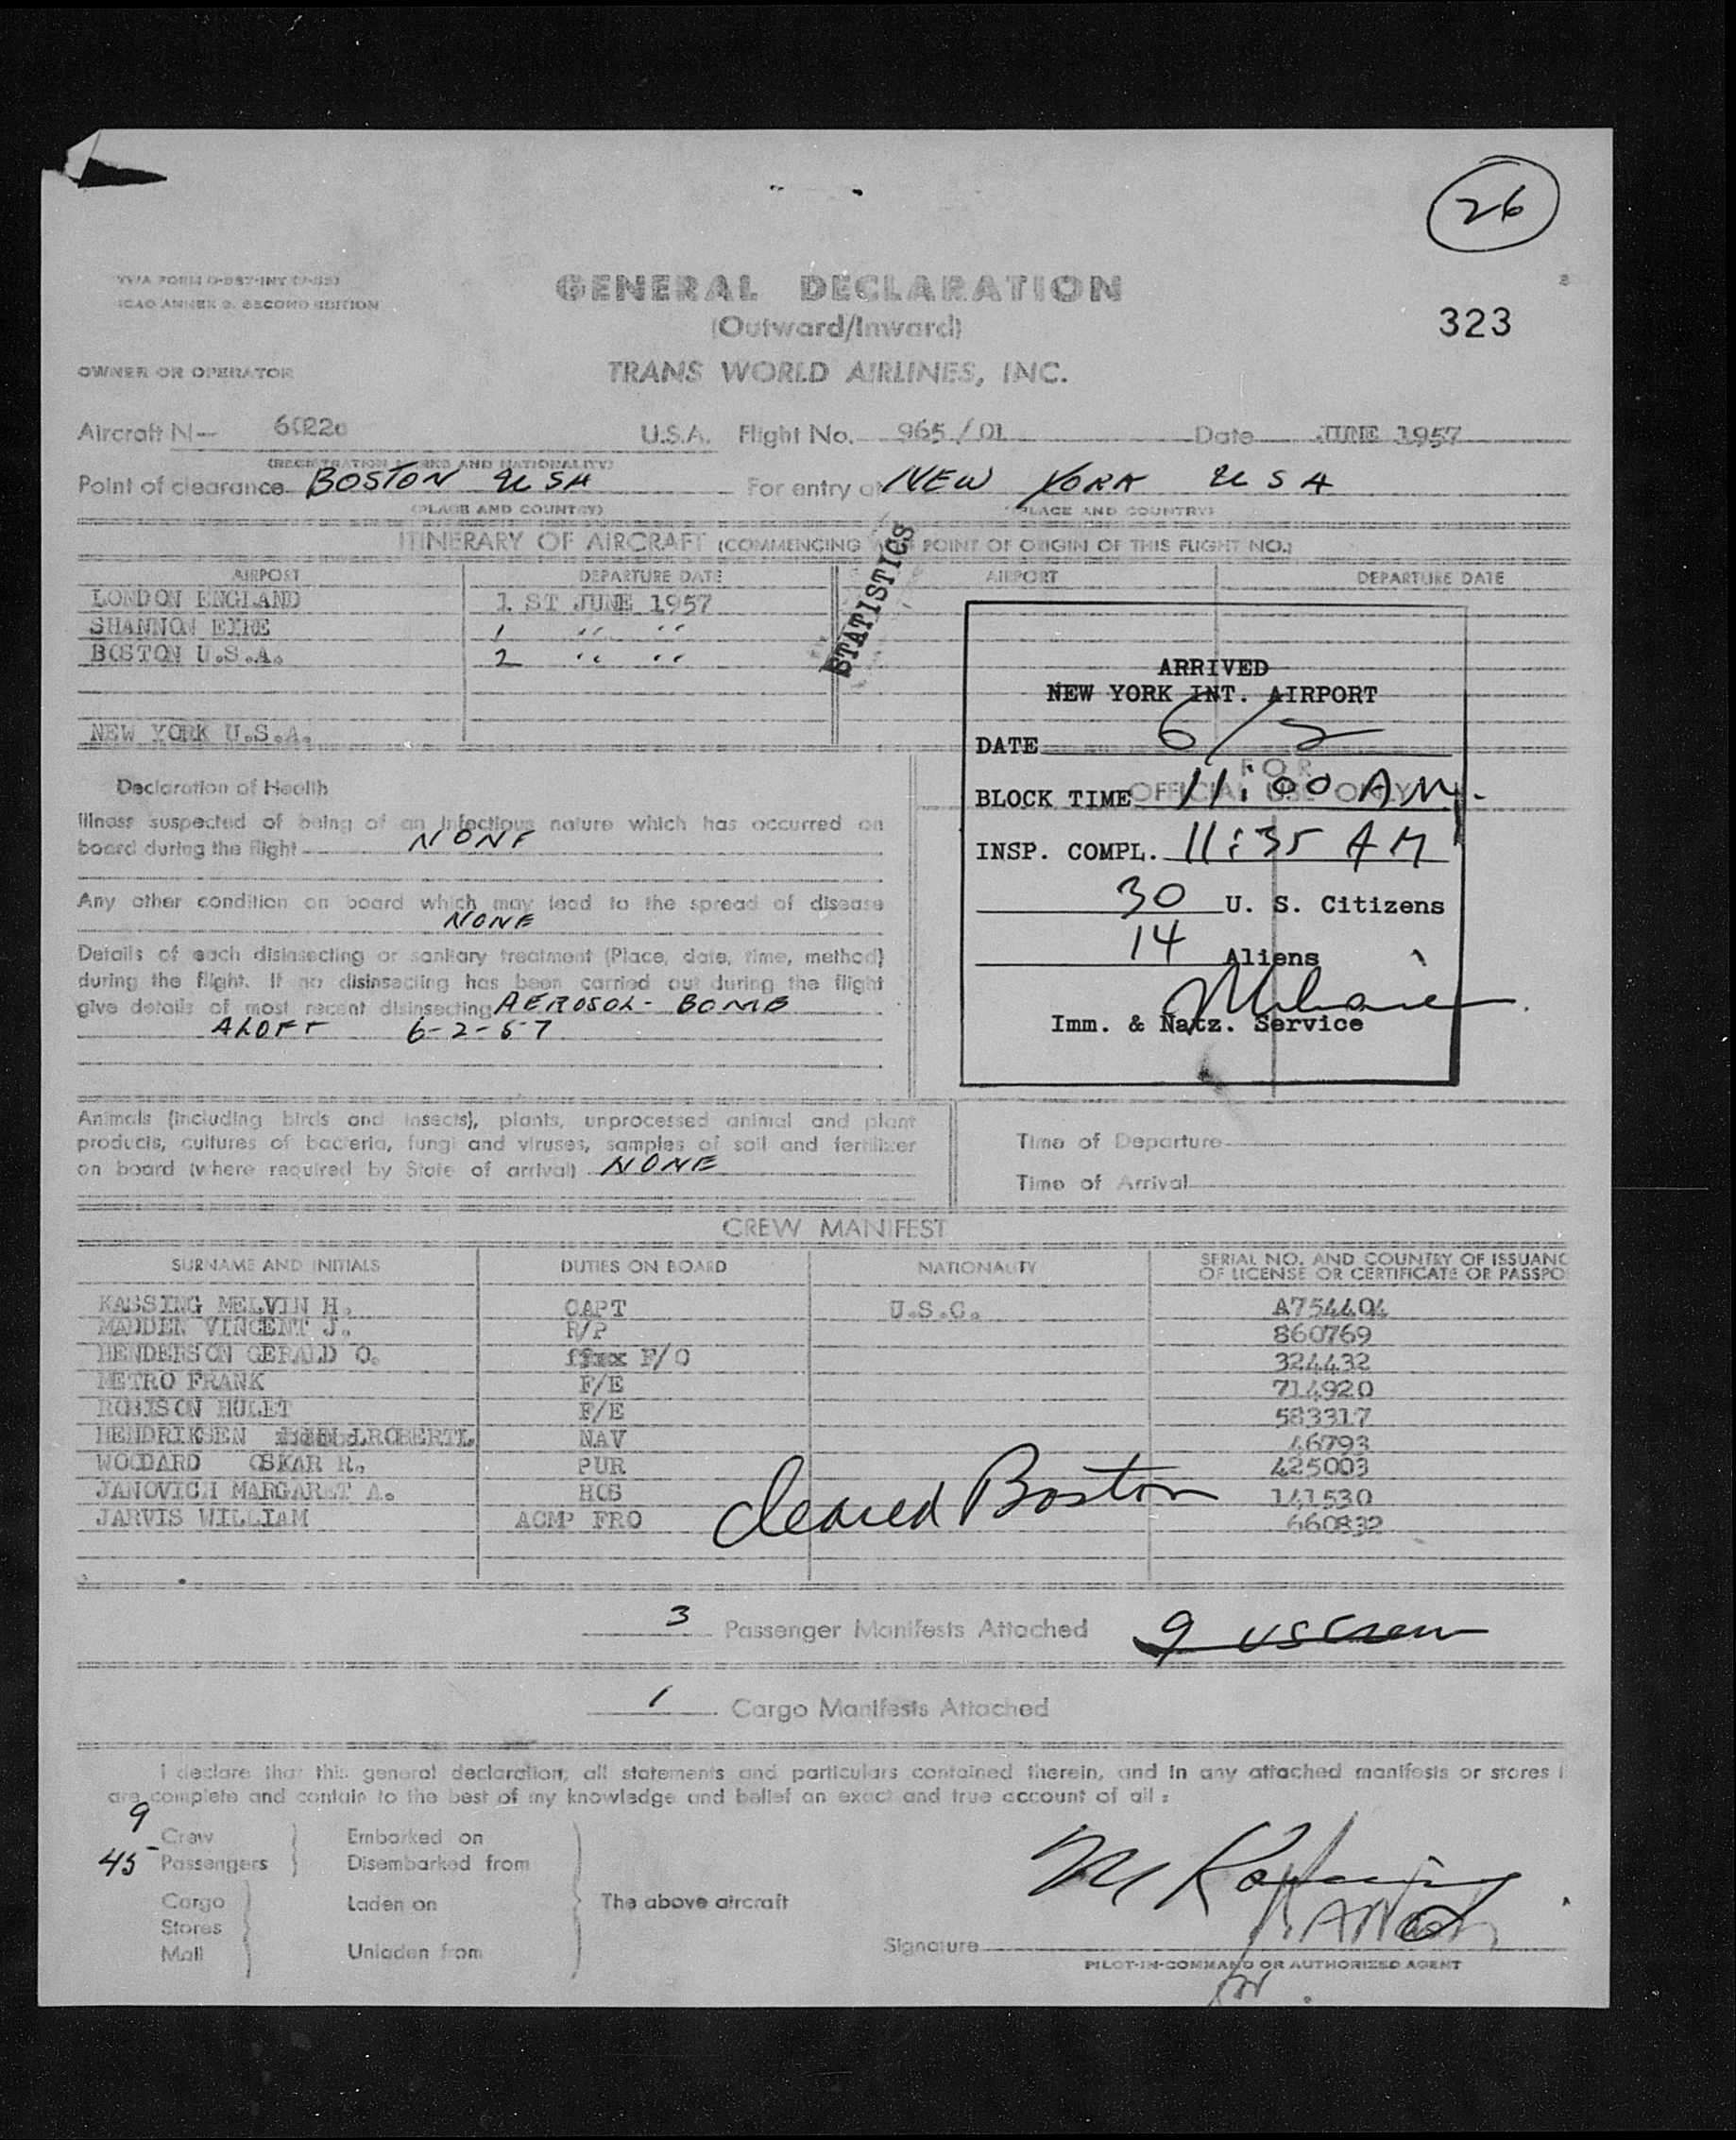 26
GENERAL DECLARATION
ICAO ANNEX 9. SECOND EDITION
(Outward/Inward)
323
OWNER OR OPERATOR
TRANS WORLD AIRLINES, INC.
Aircraft N— U.S.A. Flight No. 965/01 Date JUNE 1957
(REGISTRATION MARKS AND NATIONALITY)
Point of clearance BOSTON USA For entry at NEW YORK USA
(PLACE AND COUNTRY) (PLACE AND COUNTRY)
ITINERARY OF AIRCRAFT (COMMENCING POINT OF ORIGIN OF THIS FLIGHT NO.)
STATISTICS
AIRPORT DEPARTURE DATE AIRPORT DEPARTURE DATE
LONDON ENGLAND 1 ST JUNE 1957
SHANNON EIRE 1 " "
BOSTON U.S.A. 2 " "
NEW YORK U.S.A.
ARRIVED
NEW YORK INT. AIRPORT
DATE 6/2
FOR
OFFICIAL USE ONLY
BLOCK TIME 11:00 AM.
INSP. COMPL. 11:35 AM
30 U. S. Citizens
14 Aliens
Imm. & Natz. Service
Declaration of Health
Illness suspected of being of an infectious nature which has occurred on
board during the flight NONE
Any other condition on board which may lead to the spread of disease
NONE
Details of each disinsecting or sanitary treatment (Place, date, time, method)
during the flight. If no disinsecting has been carried out during the flight
give details of most recent disinsecting AEROSOL-BOMB
ALOFT 6-2-57
Animals (including birds and insects), plants, unprocessed animal and plant
products, cultures of bacteria, fungi and viruses, samples of soil and fertilizer
on board (where required by State of arrival) NONE
Time of Departure
Time of Arrival
CREW MANIFEST
SURNAME AND INITIALS DUTIES ON BOARD NATIONALITY SERIAL NO. AND COUNTRY OF ISSUANC
OF LICENSE OR CERTIFICATE OR PASSPO
KASSING MELVIN H. CAPT U.S.C. A754404
MADDEN VINCENT J. R/P 860769
HENDERSON GERALD O. F/O 324432
PETRO FRANK F/E 714920
ROBISON HULET F/E 583317
HENDRIKSEN ROBERT L. NAV 46793
WOODARD OSKAR R. PUR 425003
JANOVICH MARGARET A. HOS 141530
JARVIS WILLIAM ACMP FRO 660832
Cleared Boston
3 Passenger Manifests Attached 9 US Crew
1 Cargo Manifests Attached
I declare that this general declaration, all statements and particulars contained therein, and in any attached manifests or stores l
are complete and contain to the best of my knowledge and belief an exact and true account of all :
9 Crew Embarked on
45 Passengers Disembarked from
Cargo Laden on The above aircraft
Stores
Mail Unladen from
M Kassing
Signature
PILOT-IN-COMMAND OR AUTHORIZED AGENT